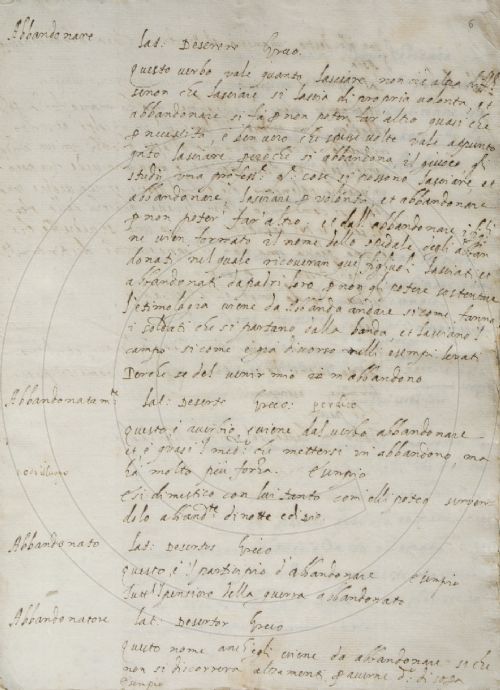 6
Abbandonare
lat: Deserere Greco.
questo verbo vale quanto lasciare, non vi è altra
senon che lasciare si lascia di propria volontà, et
abbandonare si fà p non poter far'altro quasi che
p necessità, è ben vero che spesse volte vale appunto
lasciare perche si abbandona il giuoco gl
studij una profess: cose si possono lasciare et
abbandonare, lasciare p volontà et abbandonare
p non poter far'altro. et dall'abbandonare
ne vien formato il nome dello spedale degli abban
donati nel quale ricoveran quei figliuoli lasciati et
abbandonati da padri loro p non gli potere sostentare
l'etimologia viene da banda andare si come fanno
i soldati che si partano dalla banda, et lasciano il
campo si come è più diverso nelli esempi
Perche se del venir mio m'abbandono
Abbandonatamte
lat: Deserto Greco:
questo è averbio, e viene dal verbo abbandonare
et è quasi il med: che mettersi in abbandono, ma
ha molto più forza. Esempio
E si dimestico con lui tanto com elli poteva
dolo aband: di notte e di dì.
Abbandonato
lat: Desertus Greco
questo è il participio d'abbandonare esempio
Tutt'il pensiero della guerra abbandonato
Abbandonatore
lat: Desertor Greco
questo nome anch egli viene da abbandonare si che
non si discorrerà altramenti p averne d: di sopra
Esempio